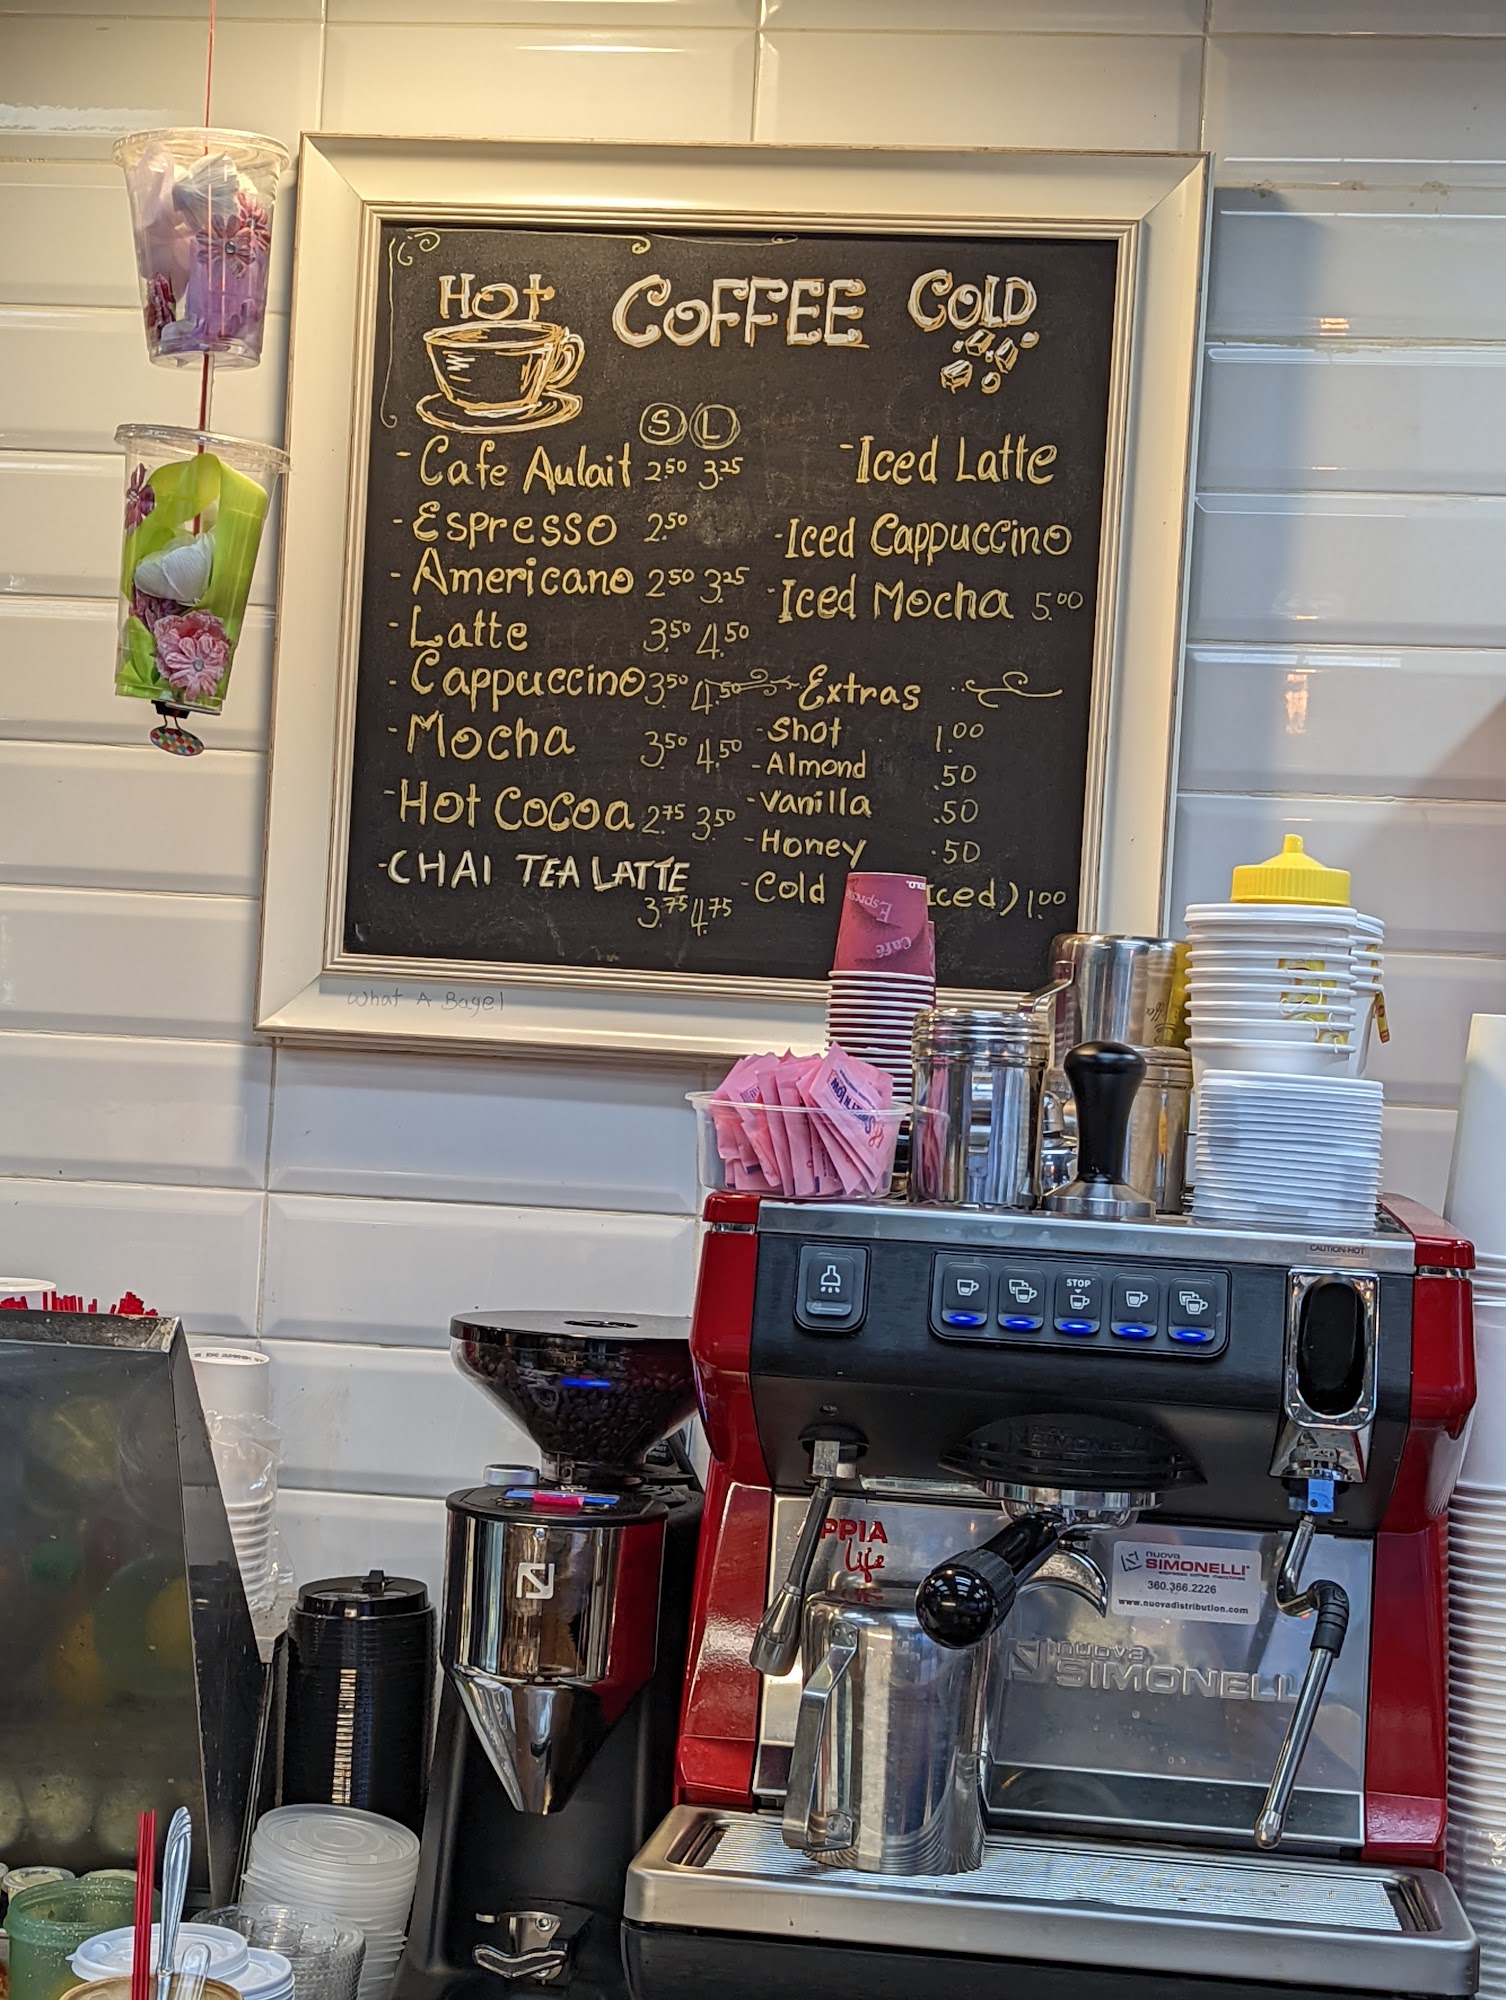 Hot COFFEE COLD
S L
- Cafe Aulait 2.50 3.25
- Espresso 2.50
- Americano 2.50 3.25
- Latte 3.50 4.50
- Cappuccino 3.50 4.50
- Mocha 3.50 4.50
- Hot Cocoa 2.75 3.50
- CHAI TEA LATTE
3.75 4.75
- Iced Latte
- Iced Cappuccino
- Iced Mocha 5.00
Extras
- Shot 1.00
- Almond .50
- Vanilla .50
- Honey .50
- Cold iced) 1.00
What A Bagel
Café
CAUTION-HOT
STOP
PPIA
life
nuova
SIMONELLI
360.366.2226
www.nuovadistribution.com
nuova
SIMONELLI